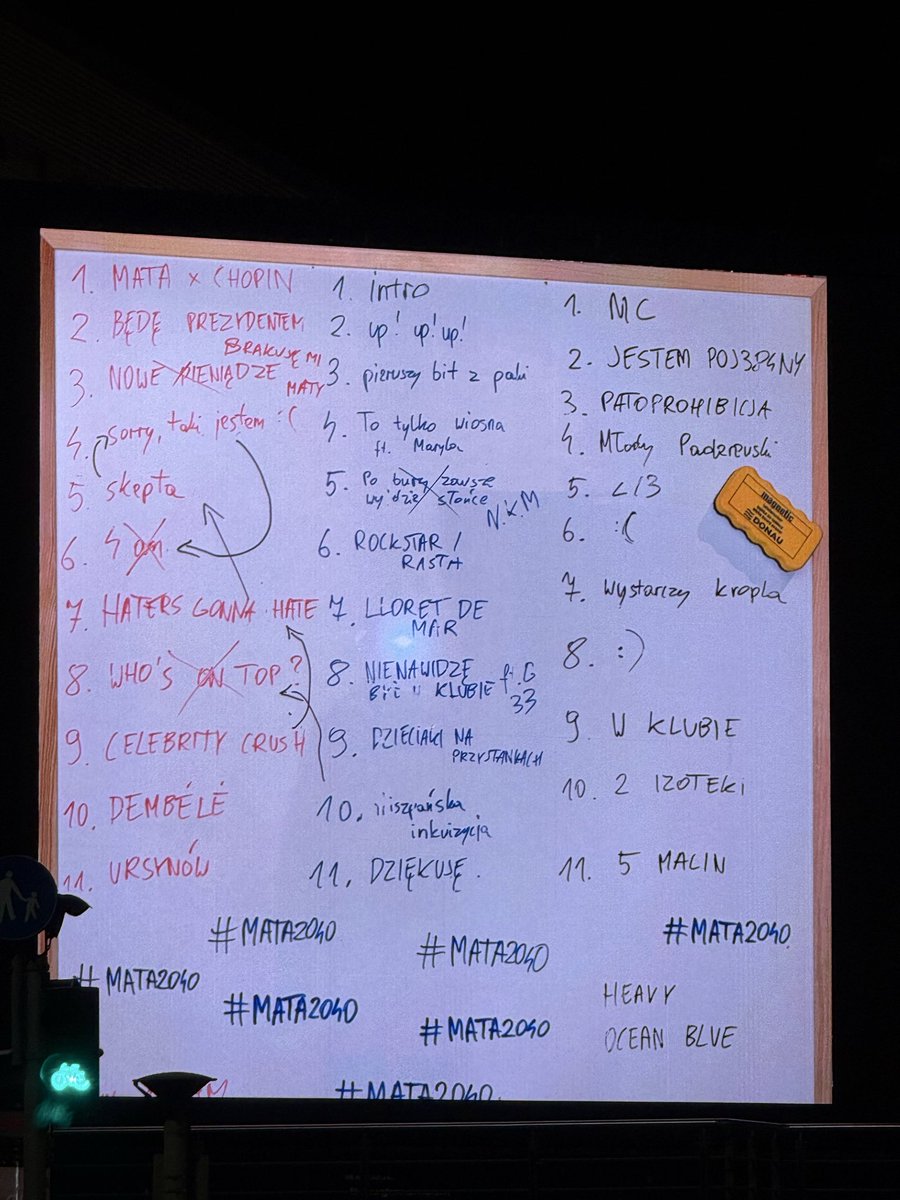 1. MATA x CHOPIN
2. BĘDĘ PREZYDENTEM
BRAKUJE MI
MATY
3. NOWE PIENIĄDZE
4. sorry, taki jestem :(
5. skepta
6. 4 am
7. HATERS GONNA HATE
8. WHO'S ON TOP?
9. CELEBRITY CRUSH
10. DEMBÉLÉ
11. URSYNÓW
1. intro
2. up! up! up!
3. pierwszy bit z paki
4. To tylko wiosna
ft. Maryla
5. Po burzy zawsze
wyjdzie słońce
N.K.M
6. ROCKSTAR /
RASTA
7. LLORET DE
MAR
8. NIENAWIDZĘ
BYĆ W KLUBIE ft. G
33
9. DZIECIAKI NA
PRZYSTANKACH
10. hiszpańska
inkwizycja
11. DZIĘKUJĘ.
1. MC
2. JESTEM POJ38ANY
3. PATOPROHIBICJA
4. Młody Padrewski
5. </3
6. :(
7. wystarczy kropla
8. :)
9. W KLUBIE
10. 2 IZOTEKI
11. 5 MALIN
magnetic
DONAU
#MATA2040
#MATA2040
#MATA2040
#MATA2040
#MATA2040
#MATA2040
#MATA2040
HEAVY
OCEAN BLUE